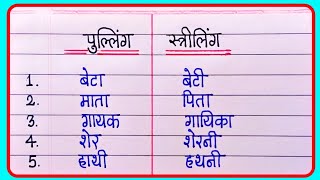 पुल्लिंग स्त्रीलिंग
1. बेटा बेटी
2. माता पिता
3. गायक गायिका
4. शेर शेरनी
5. हाथी हथनी